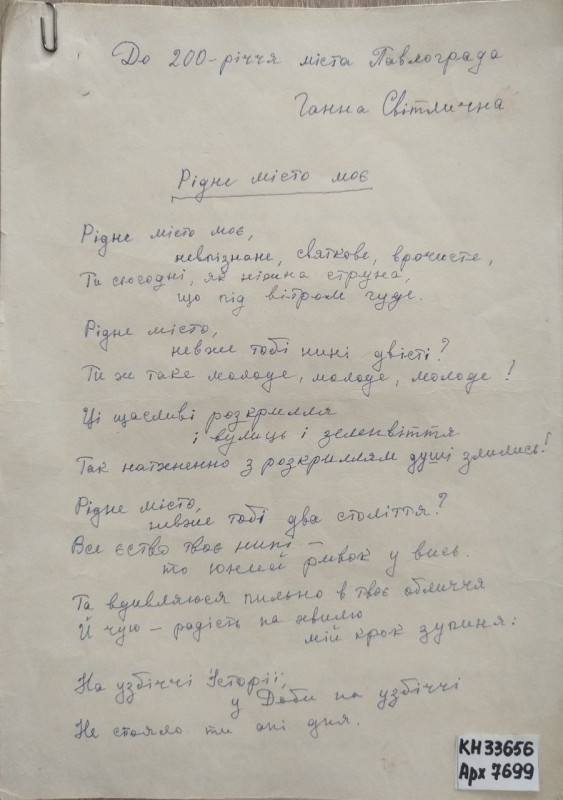 До 200-річчя міста Павлограда
Ганна Світлична
Рідне місто моє
Рідне місто моє,
невпізнане, святкове, врочисте,
Ти сьогодні, як ніжна струна,
що під вітром гуде.
Рідне місто,
невже тобі нині двісті?
Ти ж таке молоде, молоде, молоде!
Ці щасливі розкрилля
і вулиць і зеленвіття
Так натхненно з розкриллям душі злились!
Рідне місто,
невже тобі два століття?
Все єство твоє нині –
то юний ривок у вись.
Та вдивляюся пильно в твоє обличчя
Й чую – радість на хвилю
мій крок зупиня:
На узбіччі Історії,
у Доби на узбіччі
Не стояло ти ані дня.
КН33656
Арх 7699